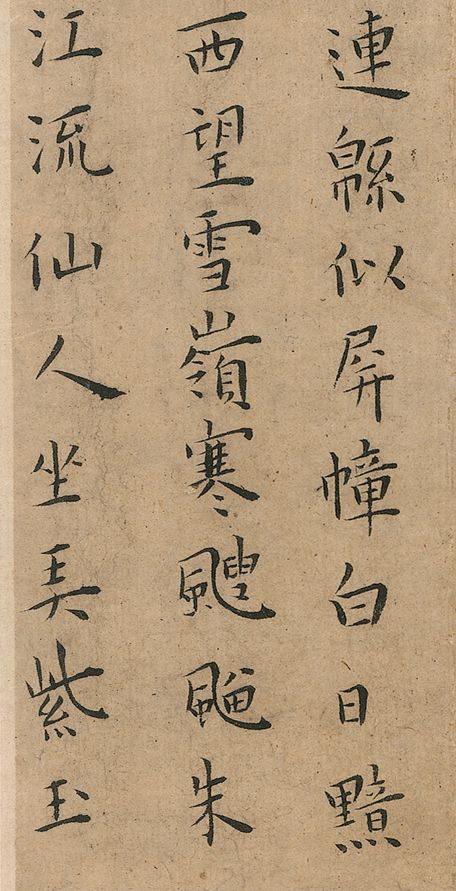 連緜似屏幛白日黯
西望雪嶺寒颼飀朱
江流仙人坐弄紫玉